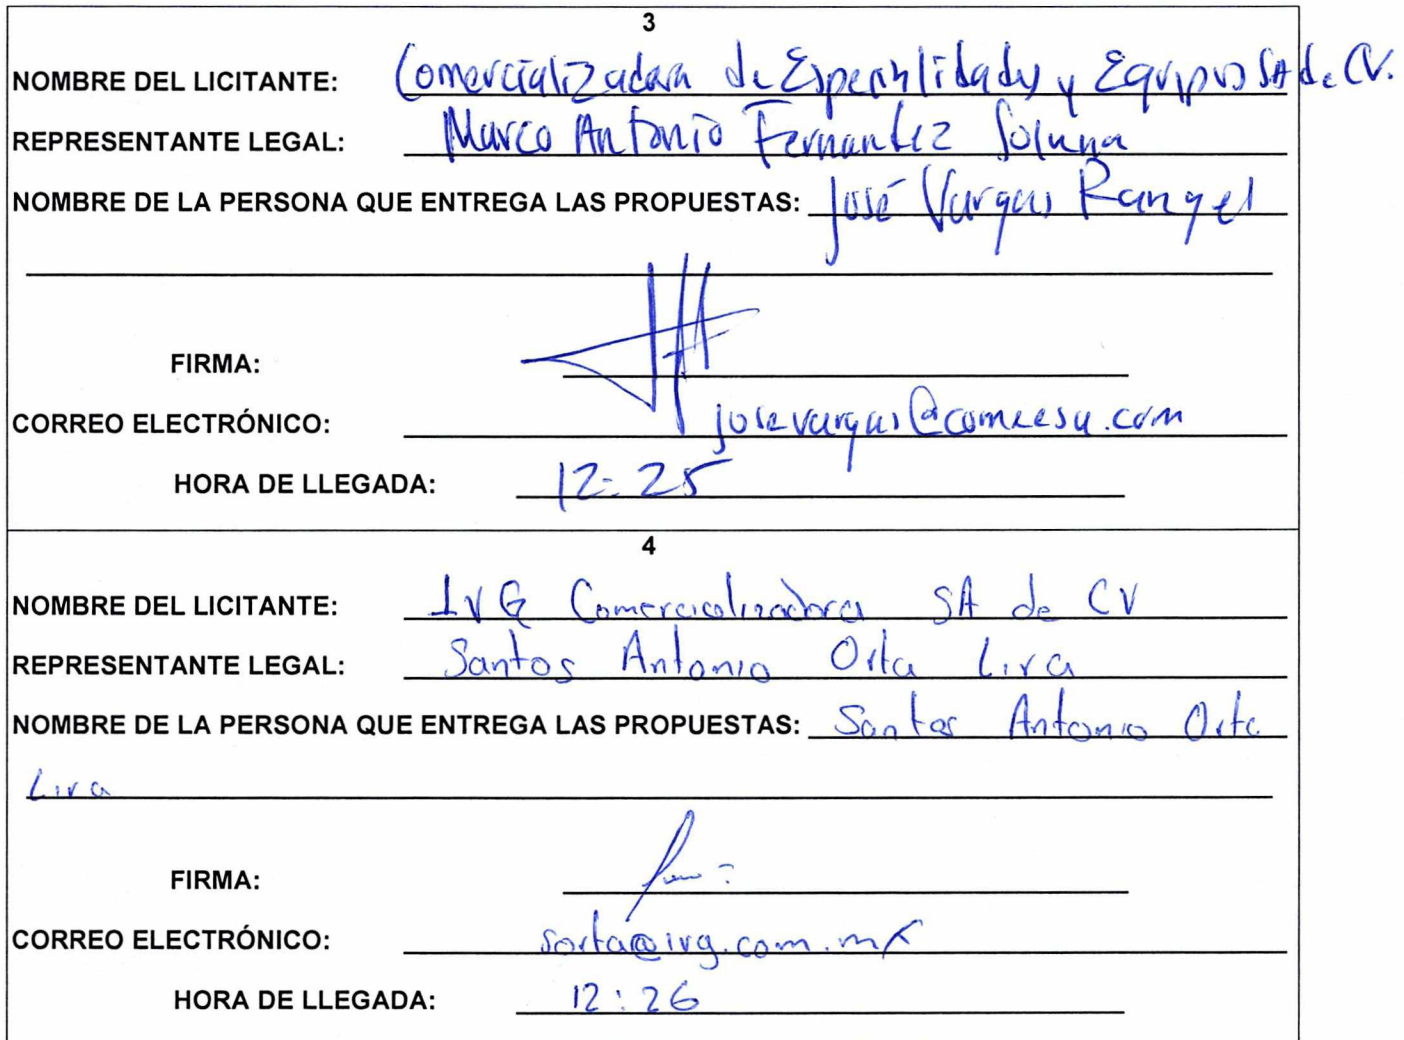 3
NOMBRE DEL LICITANTE: Comercializadora de Especialidades y Equipos SA de CV.
REPRESENTANTE LEGAL: Marco Antonio Fernandez
NOMBRE DE LA PERSONA QUE ENTREGA LAS PROPUESTAS: José Vargas Rangel
FIRMA:
CORREO ELECTRÓNICO: josevargas@comeesa.com
HORA DE LLEGADA: 12:25
4
NOMBRE DEL LICITANTE: IVG Comercializadora SA de CV
REPRESENTANTE LEGAL: Santos Antonio Orta Lira
NOMBRE DE LA PERSONA QUE ENTREGA LAS PROPUESTAS: Santos Antonio Orta
Lira
FIRMA:
CORREO ELECTRÓNICO: sorta@ivg.com.mx
HORA DE LLEGADA: 12:26